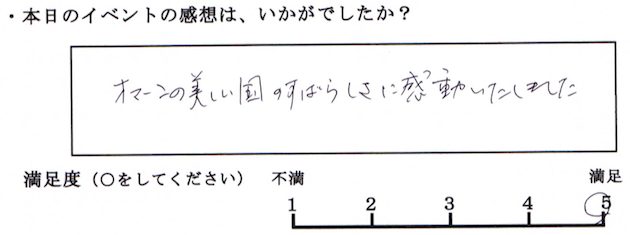 ・本日のイベントの感想は、いかがでしたか？
オマーンの美しい国のすばらしさに感動いたしました
満足度（○をしてください） 不満 満足
1 2 3 4 5